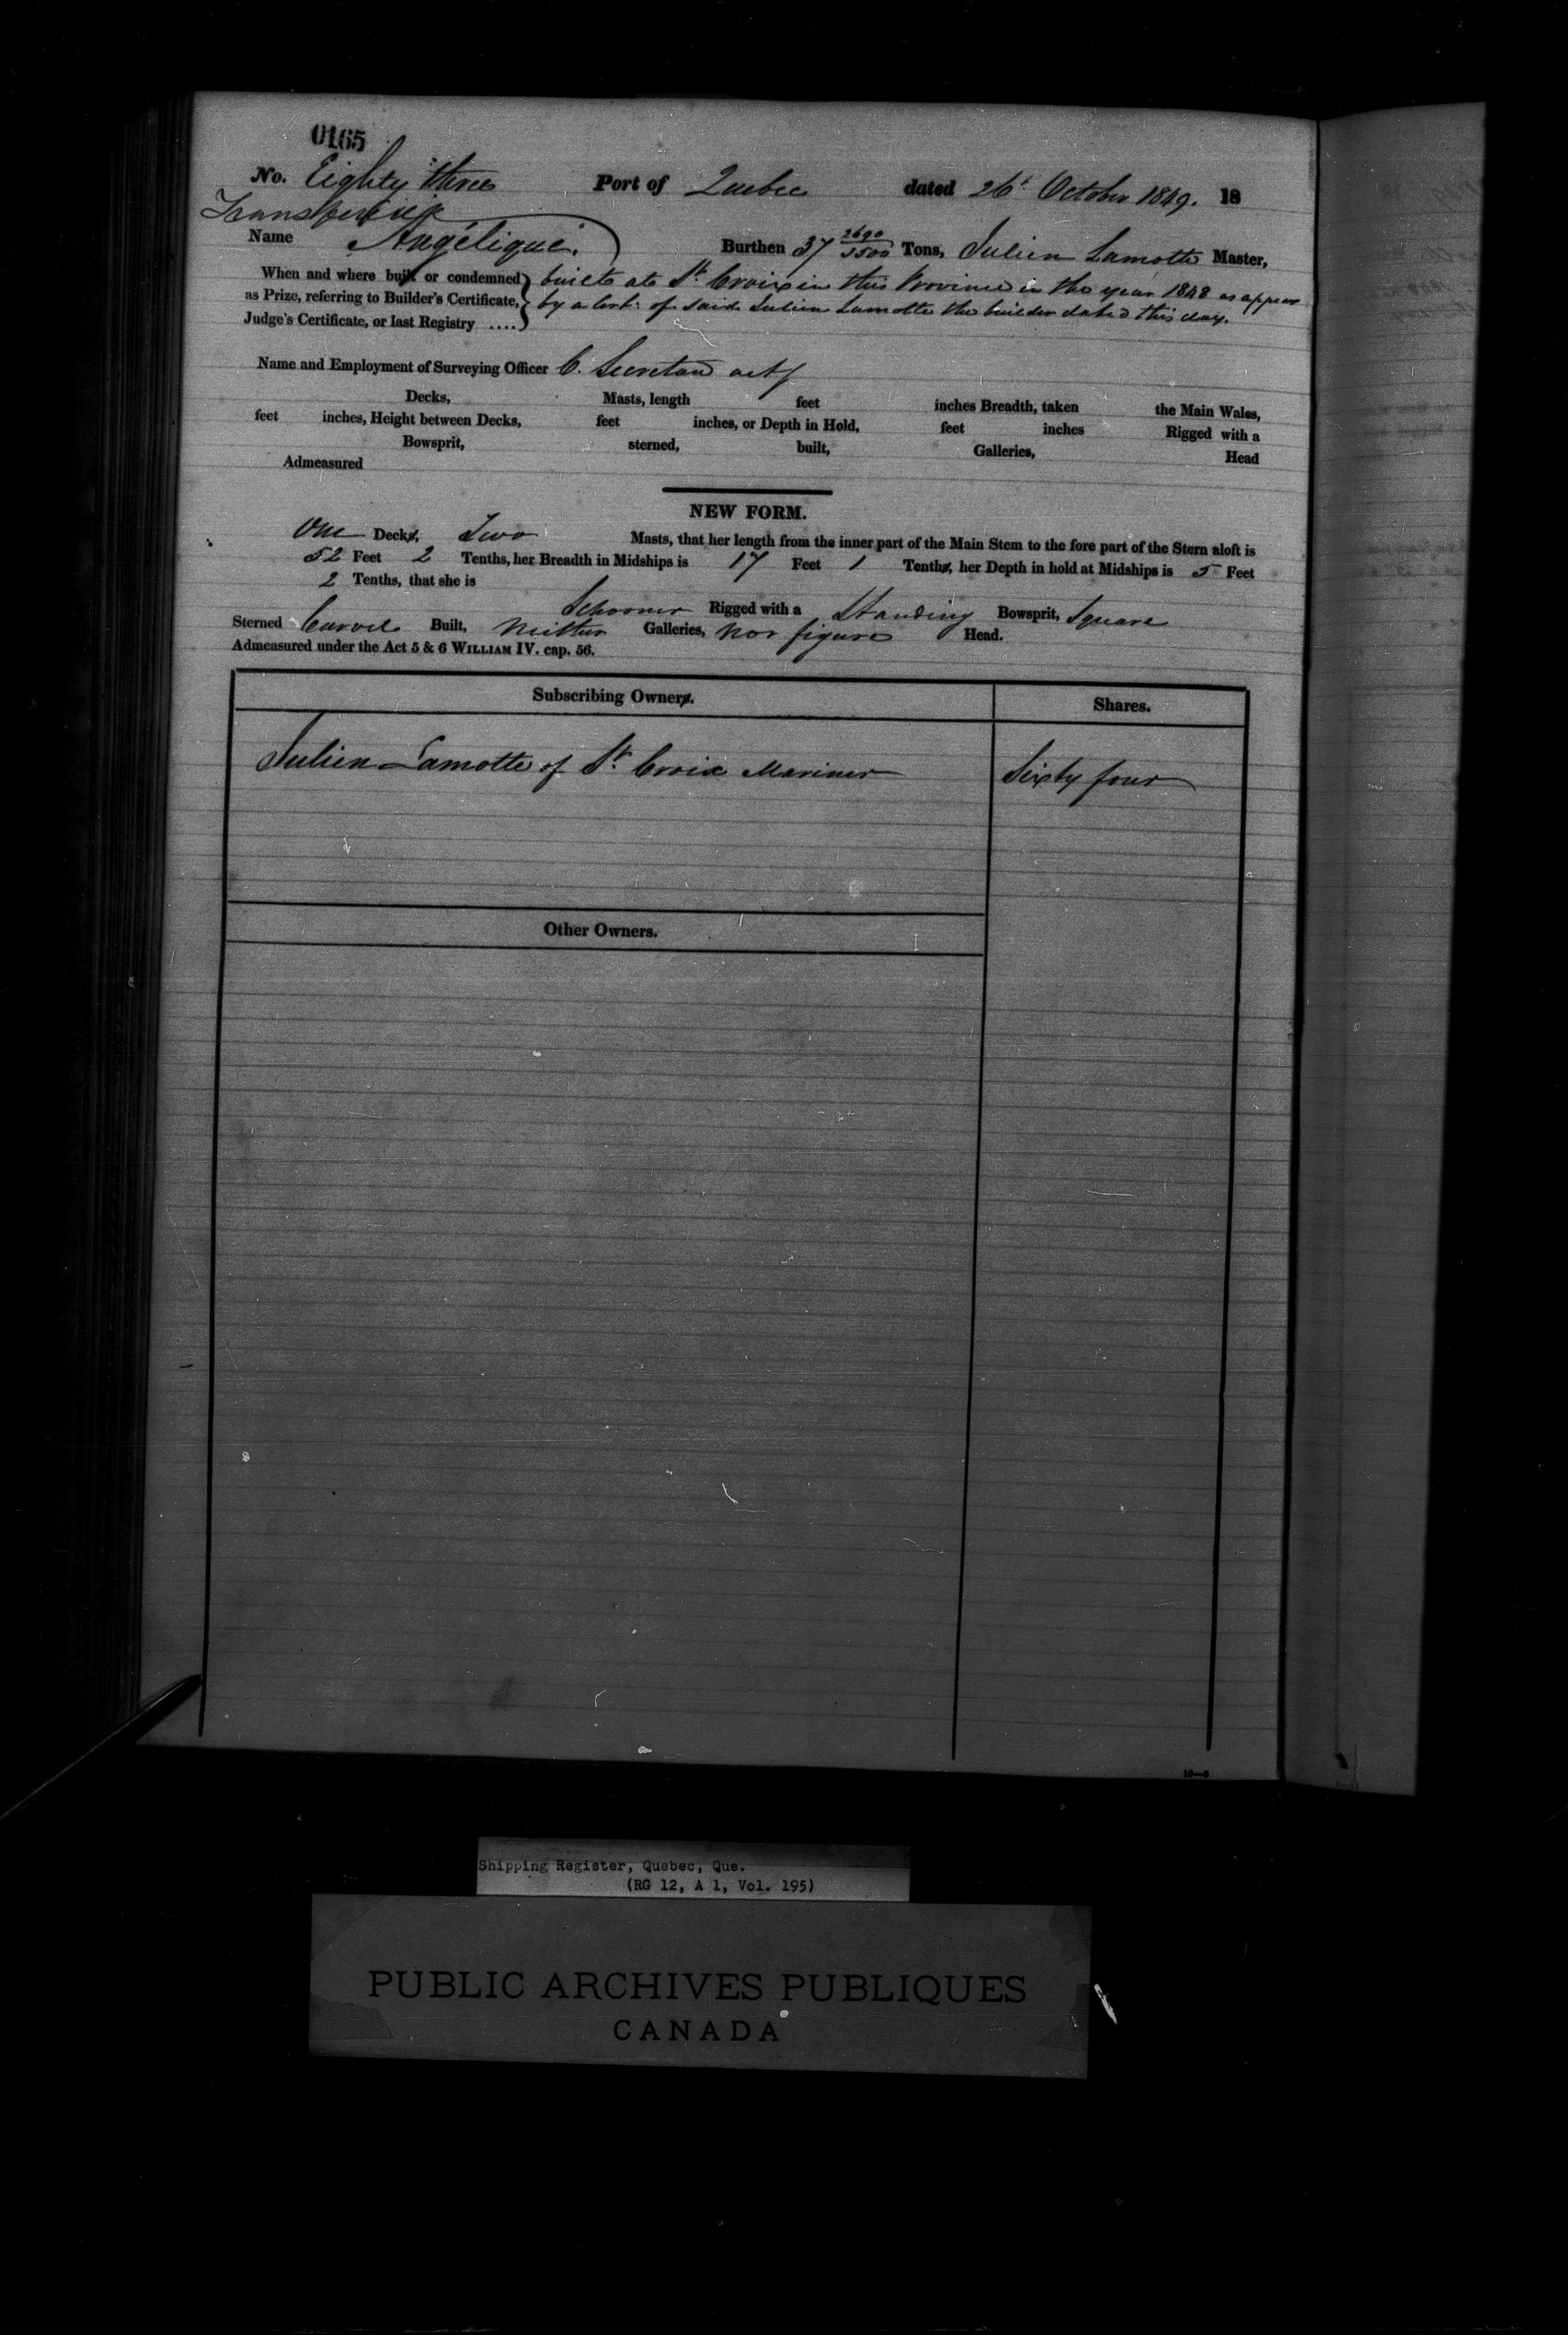 0165
No. Eighty three Port of Quebec dated 26t October 1849. 18
Name Angélique. Burthen 37 2690/3500 Tons, Julien Lamotte Master,
When and where built or condemned built at St. Croix in this Province in the year 1848 as appears
as Prize, referring to Builder's Certificate, by a Cert: of said Julien Lamotte the builder dated this day.
Judge's Certificate, or last Registry ....
Name and Employment of Surveying Officer C. Secretan actg
Decks, Masts, length feet inches Breadth, taken the Main Wales,
feet inches, Height between Decks, feet inches, or Depth in Hold, feet inches Rigged with a
Bowsprit, sterned, built, Galleries, Head
Admeasured
NEW FORM.
One Decks, Two Masts, that her length from the inner part of the Main Stem to the fore part of the Stern aloft is
52 Feet 2 Tenths, her Breadth in Midships is 17 Feet 1 Tenths, her Depth in hold at Midships is 5 Feet
2 Tenths, that she is Schooner Rigged with a Standing Bowsprit, Square
Sterned Carvel Built, Neither Galleries, nor figure Head.
Admeasured under the Act 5 & 6 WILLIAM IV. cap. 56.
Subscribing Owners. Shares.
Julien Lamotte of St. Croix Mariner Sixty four
Other Owners.
10—8
Shipping Register, Quebec, Que.
(RG 12, A 1, Vol. 195)
PUBLIC ARCHIVES PUBLIQUES
CANADA